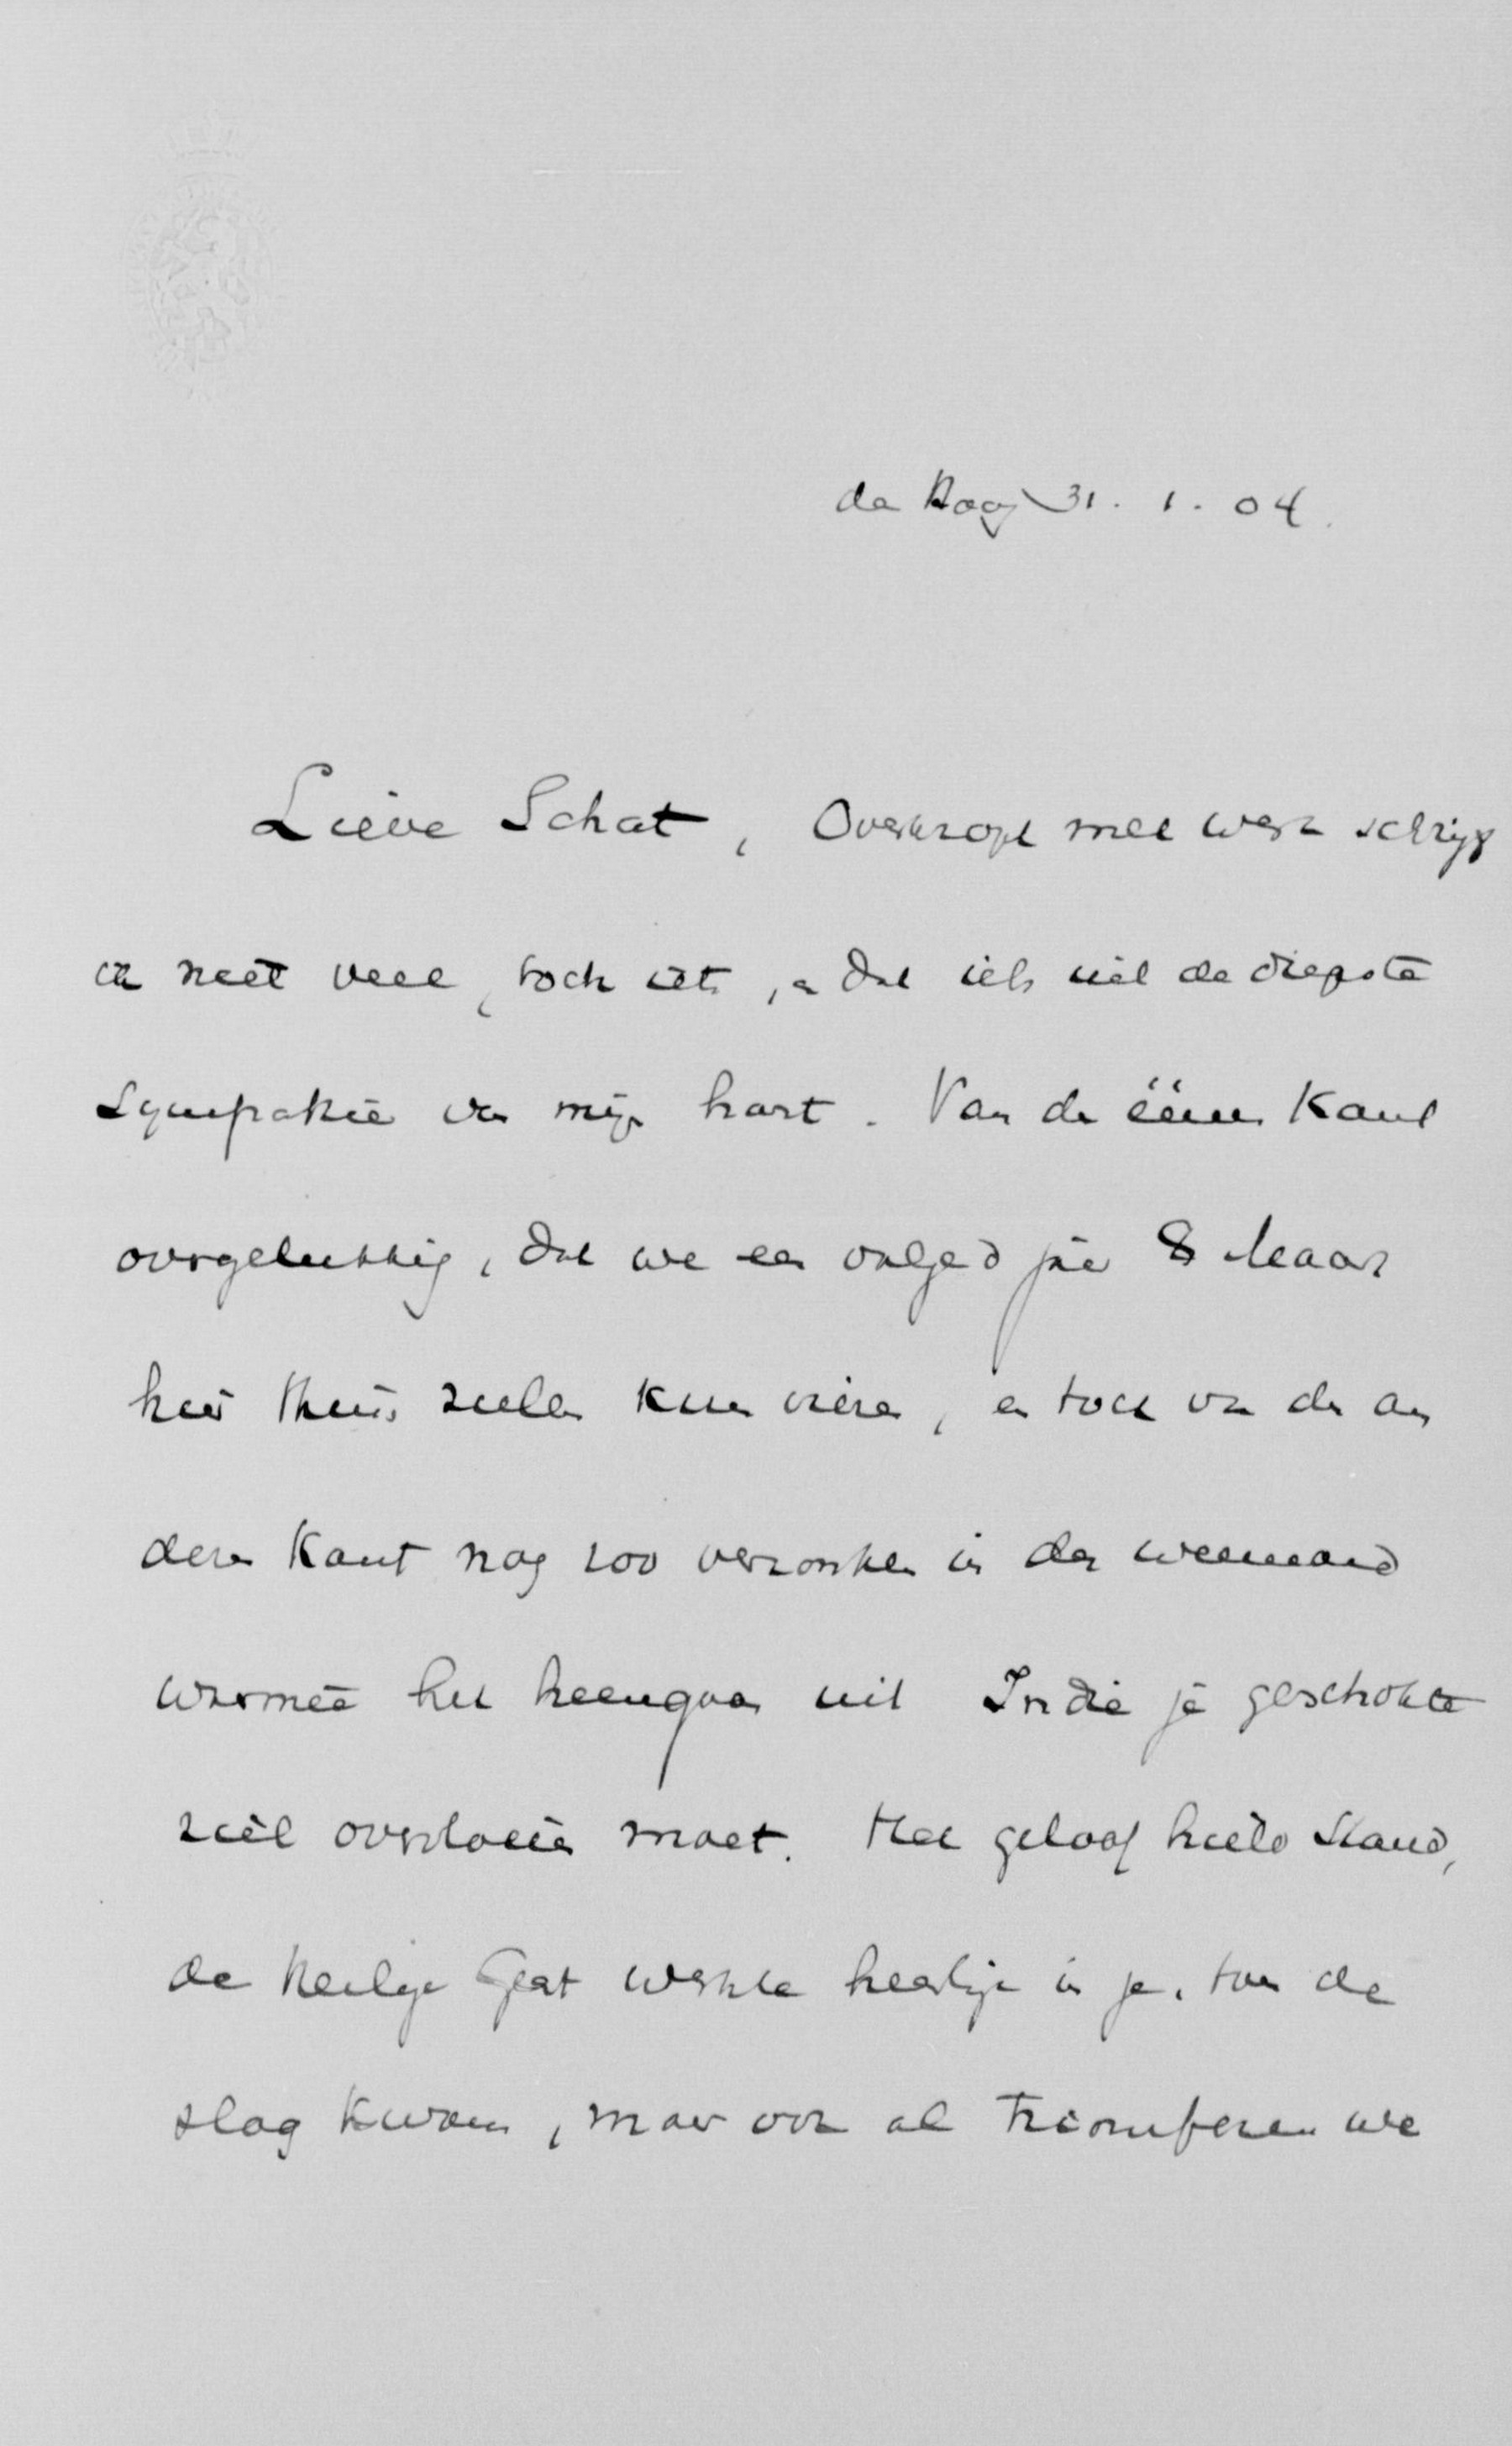 de Haag 31. 1. 04.
Lieve Schat, Overkropt met werk schrijf
ik niet veel, toch iets, en dat iets uit de diepste
sympathie van mijn hart. Van de ééne kant
overgelukkig, dat we een volgend jaar 8 Maart
hier thuis zullen kunnen vieren, en toch van de an
dere kant nog zoo verzonken in den weemoed
waarmeê het heengaan uit Indie je geschokte
ziel overvloeien moet. Het geloof hield stand,
de heilige Geest werkte heerlijk in je, toen de
slag kwam, maar ook al triomferen we